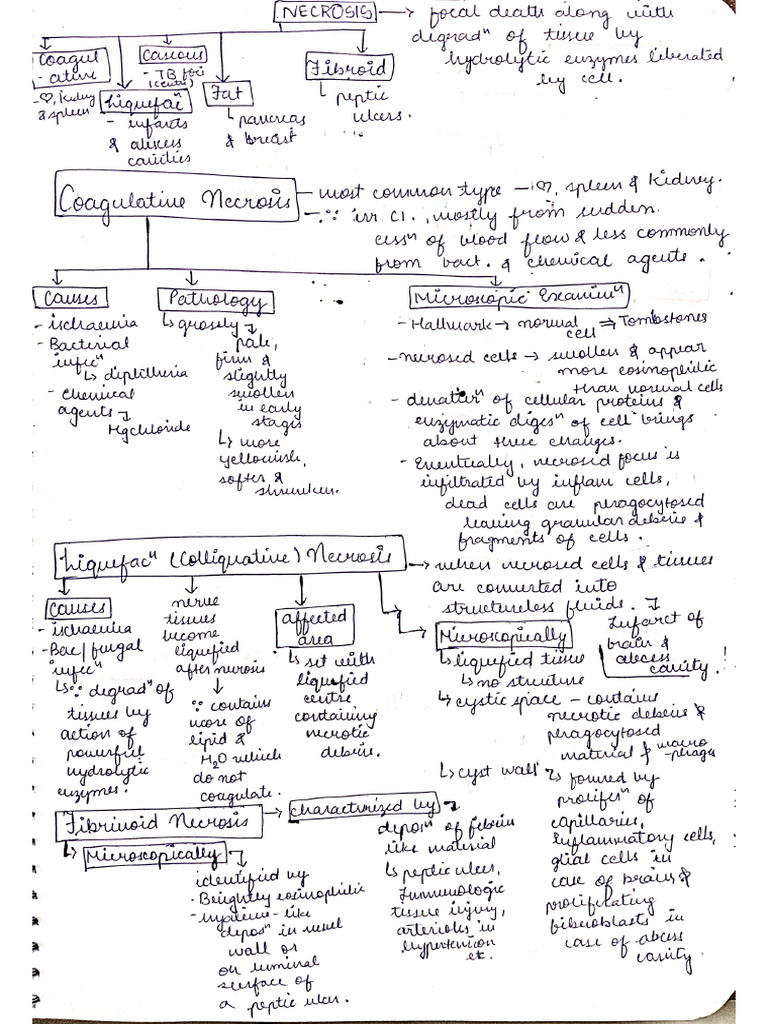 NECROSIS → focal death along with
degradⁿ of tissue by
hydrolytic enzymes liberated
by cell.
Coagul
-ative
- ♡, kidney
& spleen
Liquefacⁿ
- infants
& abscess
cavities
Caseous
- TB foci
(centre)
Fat
↳ pancreas
& breast
Fibroid
↳ peptic
ulcers.
Coagulative Necrosis
- most common type - ♡, spleen & kidney.
- ∵ irr CI., mostly from sudden
cessⁿ of blood flow & less commonly
from bact. & chemical agents.
Causes
- ischaemia
- Bacterial
infecⁿ
↳ diphtheria
- chemical
agents ↴
Hgchloride
Pathology
↳ grossely ↴
pale,
firm &
slightly
swollen
in early
stages
↳ more
yellowish,
softer &
shrunken.
Microscopic Examinⁿ
- Hallmark → normal cell ⇒ Tombstones
- necrosed cells → swollen & appear
more eosinophilic
than normal cells
- denaturⁿ of cellular proteins &
enzymatic digesⁿ of cell brings
about these changes.
- Eventually, necrosed focus is
infiltrated by inflam cells,
dead cells are phagocytosed
leaving granular debris &
fragments of cells.
Liquefacⁿ (Colliquative) Necrosis
→ when necrosed cells & tissues
are converted into
structureless fluids. ↴
Infarct of
brain &
abscess
cavity. !
Causes
- ischaemia
- Bac/fungal
infecⁿ
↳ ∵ degradⁿ of
tissues by
action of
powerful
hydrolytic
enzymes.
nerve
tissues
become
liquified
after necrosis
↓
∵ contains
more of
lipid &
H₂O which
do not
coagulate.
affected
area
↳ set with
liquefied
centre
containing
necrotic
debris.
Microscopically
↳ liquefied tissue
↳ no structure
↳ cystic space - contains
necrotic debris &
phagocytosed
material & macro
-phages
↳ cyst wall ↴
↳ formed by
prolifernⁿ of
capillaries,
inflammatory cells,
glial cells in
case of brain &
proliferating
fibroblasts in
case of abcess
cavity.
Fibrinoid Necrosis → characterized by ↴
deposⁿ of fibrin
like material
↳ peptic ulcer,
Immunologic
tissue injury,
arterioles in
hypertension
etc.
↳ Microscopically ↴
identified by
- Brightly eosinophilic
- hyaline-like
deposⁿ in vessel
wall or
on luminal
surface of
a peptic ulcer.